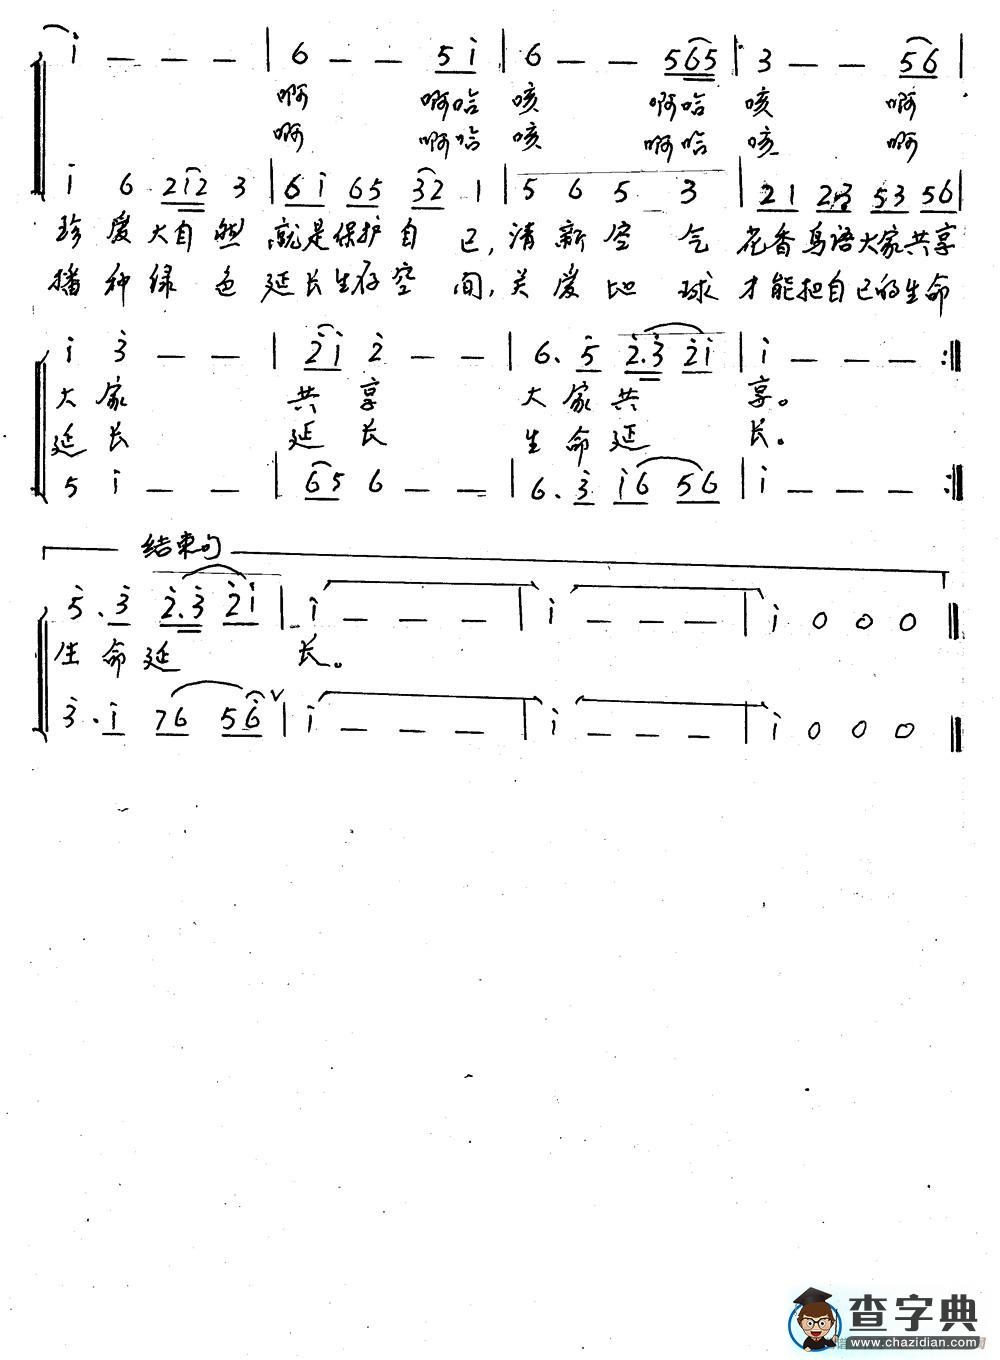 i - - - | 6 - - 5 i | 6 - - 5 6 5 | 3 - - 5 6 |
啊 啊哈 咳 啊哈 咳 啊
啊 啊哈 咳 啊哈 咳 啊
i 6 2 i 2 3 | 6 i 6 5 3 2 1 | 5 6 5 3 | 2 1 2 3 5 3 5 6 |
珍爱大自然就是保护自己,清新空气花香鸟语大家共享
播种绿色延长生存空间,关爱地球才能把自己的生命
i 3 - - | 2 i 2 - - | 6. 5 2. 3 2 i | i - - - :||
大家 共享 大家共 享。
延长 延长 生命延 长。
5 i - - | 6 5 6 - - | 6. 3 i 6 5 6 | i - - - :||
结束句
5. 3 2. 3 2 i | i - - - | i - - - | i 0 0 0 ||
生命延 长。
3. i 7 6 5 6 V | i - - - | i - - - | i 0 0 0 ||
查字典
www.chazidian.com